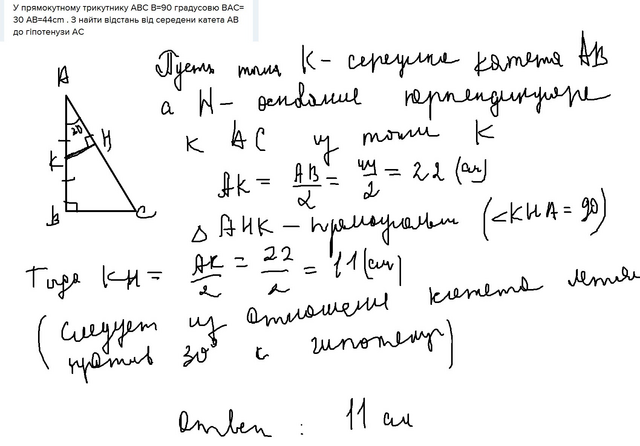 У прямокутному трикутнику ABC B=90 градусовю BAC=
30 AB=44cm . З найти відстань від середени катета AB
до гіпотенузи AC
A
30
H
K
B
C
Пусть точка K - середина катета AB
а H - основание перпендикуляра
к AC из точки K
AK = AB/2 = 44/2 = 22 (см)
△ AHK - прямоугольн (<KHA = 90)
Тогда KH = AK/2 = 22/2 = 11 (см)
(следует из отношения катета лежащ
против 30° к гипотенуз)
Ответ : 11 см